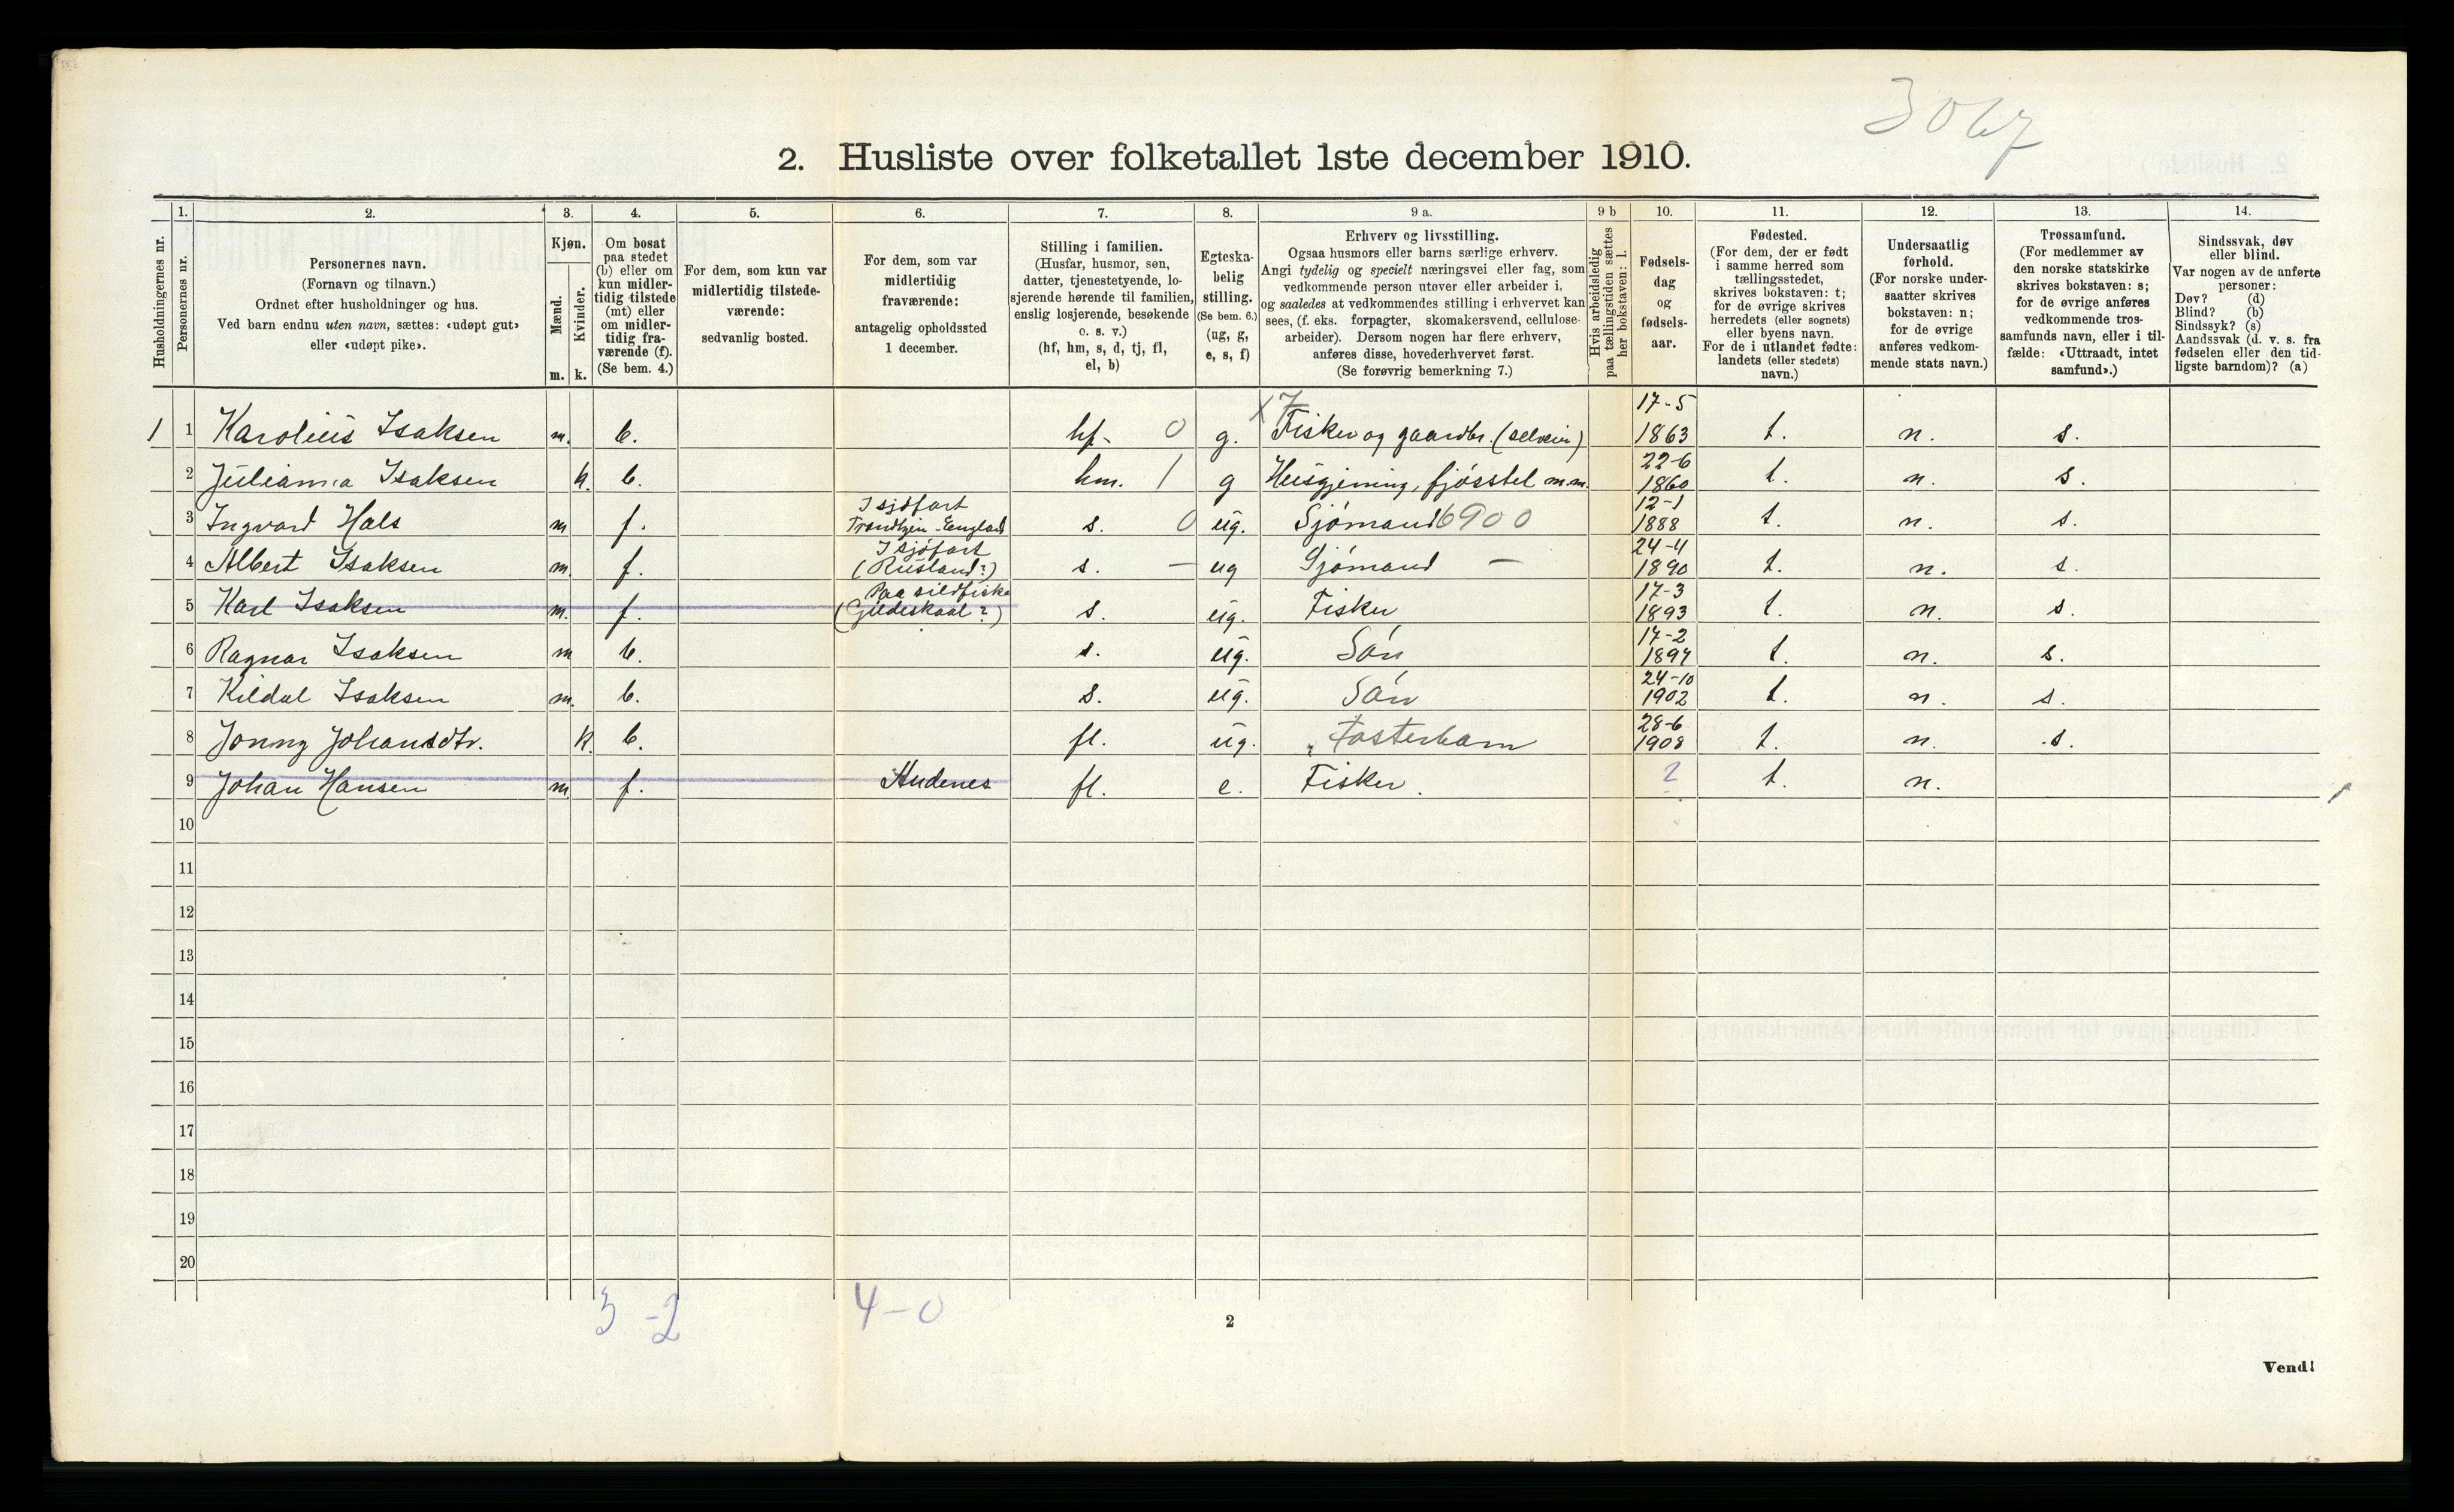 3067
2. Husliste over folketallet 1ste december 1910.
Husholdningernes nr.
1.
Personernes nr.
2.
Personernes navn.
(Fornavn og tilnavn.)
Ordnet efter husholdninger og hus.
Ved barn endnu uten navn, sættes: «udøpt gut»
eller «udøpt pike».
3.
Kjøn.
Mænd.
Kvinder.
m. k.
4.
Om bosat
paa stedet
(b) eller om
kun midler-
tidig tilstede
(mt) eller
om midler-
tidig fra-
værende (f).
(Se bem. 4.)
5.
For dem, som kun var
midlertidig tilstede-
værende:
sedvanlig bosted.
6.
For dem, som var
midlertidig
fraværende:
antagelig opholdssted
1 december.
7.
Stilling i familien.
(Husfar, husmor, søn,
datter, tjenestetyende, lo-
sjerende hørende til familien,
enslig losjerende, besøkende
o. s. v.)
(hf, hm, s, d, tj, fl,
el, b)
8.
Egteska-
belig
stilling.
(Se bem. 6.)
(ug, g,
e, s, f)
9 a.
Erhverv og livsstilling.
Ogsaa husmors eller barns særlige erhverv.
Angi tydelig og specielt næringsvei eller fag, som
vedkommende person utøver eller arbeider i,
og saaledes at vedkommendes stilling i erhvervet kan
sees, (f. eks. forpagter, skomakersvend, cellulose-
arbeider). Dersom nogen har flere erhverv,
anføres disse, hovederhvervet først.
(Se forøvrig bemerkning 7.)
9 b
Hvis arbeidsledig
paa tællingstiden sættes
her bokstaven: l.
10.
Fødsels-
dag
og
fødsels-
aar.
11.
Fødested.
(For dem, der er født
i samme herred som
tællingsstedet,
skrives bokstaven: t;
for de øvrige skrives
herredets (eller sognets)
eller byens navn.
For de i utlandet fødte:
landets (eller stedets)
navn.)
12.
Undersaatlig
forhold.
(For norske under-
saatter skrives
bokstaven: n;
for de øvrige
anføres vedkom-
mende stats navn.)
13.
Trossamfund.
(For medlemmer av
den norske statskirke
skrives bokstaven: s;
for de øvrige anføres
vedkommende tros-
samfunds navn, eller i til-
fælde: «Uttraadt, intet
samfund».)
14.
Sindssvak, døv
eller blind.
Var nogen av de anførte
personer:
Døv? (d)
Blind? (b)
Sindssyk? (s)
Aandssvak (d. v. s. fra
fødselen eller den tid-
ligste barndom)? (a)
1 1 Karolius Isaksen m. b. hf. 0 g. x 7 Fisker og gaardbr. (selveier) 17-5 1863 t. n. s.
2 Julianna Isaksen k. b. hm. 1 g Husgjerning, fjósstel m.m. 22-6 1860 t. n. s.
3 Ingvard Hals m f. I sjöfart Trondhjem-England s. 0 ug. Sjómand 6900 12-1 1888 t. n. s.
4 Albert Isaksen m. f. I sjöfart (Rusland?) s. — ug Sjómand — 24-4 1890 t. n. s.
5 Karl Isaksen m. f. Paa sildfiske (Gildeskaal?) s. ug. Fisker 17-3 1893 t. n. s.
6 Ragnar Isaksen m b. s. ug. Són 17-2 1897 t. n. s.
7 Kildal Isaksen m. b. s. ug. Són 24-10 1902 t. n. s.
8 Jonny Johansdtr. k. b. fl. ug. Fosterbarn 28-6 1908 t. n. s.
9 Johan Hansen m. f. Andenes fl. e. Fisker. ? t. n.
10
11
12
13
14
15
16
17
18
19
20
3-2 4-0
2
Vend!